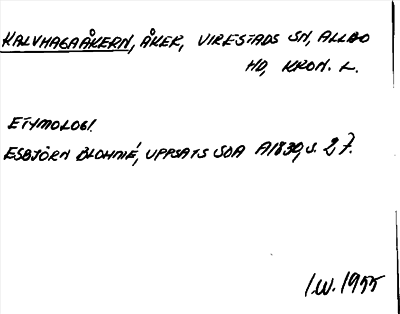 KALVHAGAÅKERN, ÅKER, VIRESTADS SN, ALLBO
HD, KRON. L.
ETYMOLOGI.
ESBJÖRN BLOHMÉ, UPPSATS SOA A1839, S. 27.
I.W. 1955